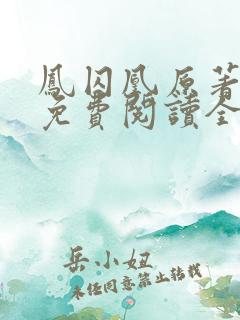 鳳囚凰原著
免費閱讀全
岳小妞
未经同意禁止转载